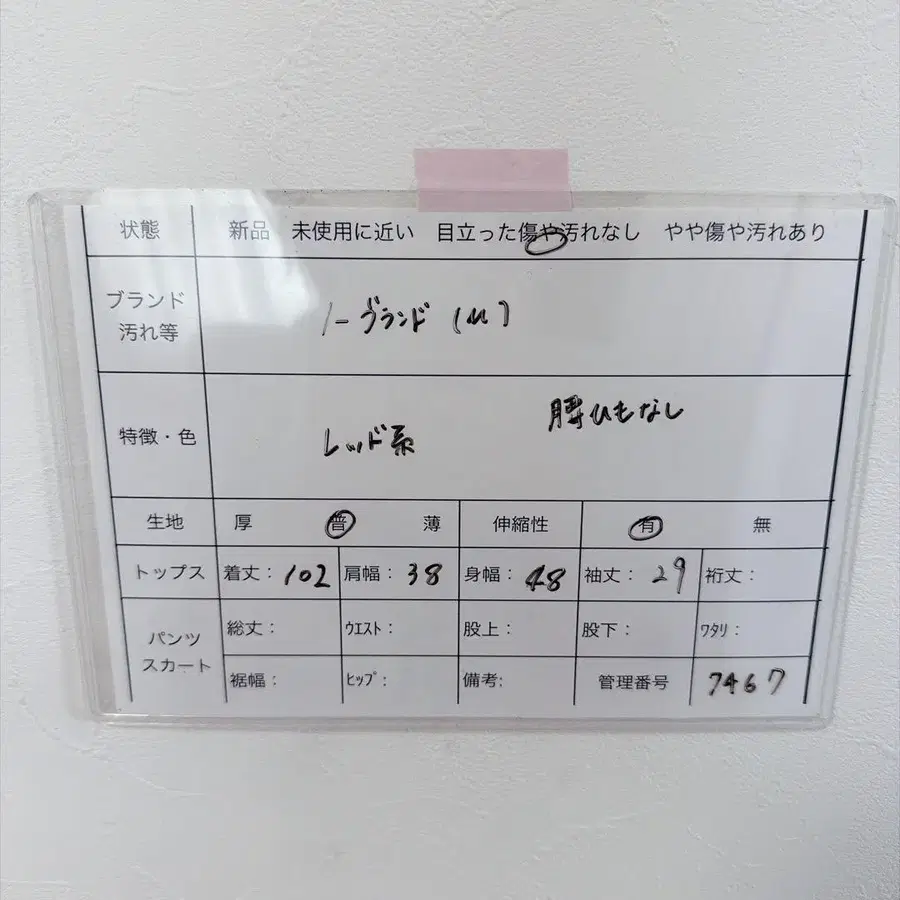 状態 新品 未使用に近い 目立った傷や汚れなし やや傷や汚れあり
ブランド
汚れ等
ノーブランド (M)
特徴・色
レッド系 腰ひもなし
生地 厚 普 薄 伸縮性 有 無
トップス 着丈: 102 肩幅: 38 身幅: 48 袖丈: 29 裄丈:
パンツ
スカート
総丈: ウエスト: 股上: 股下: ワタリ:
裾幅: ヒップ: 備考: 管理番号 7467